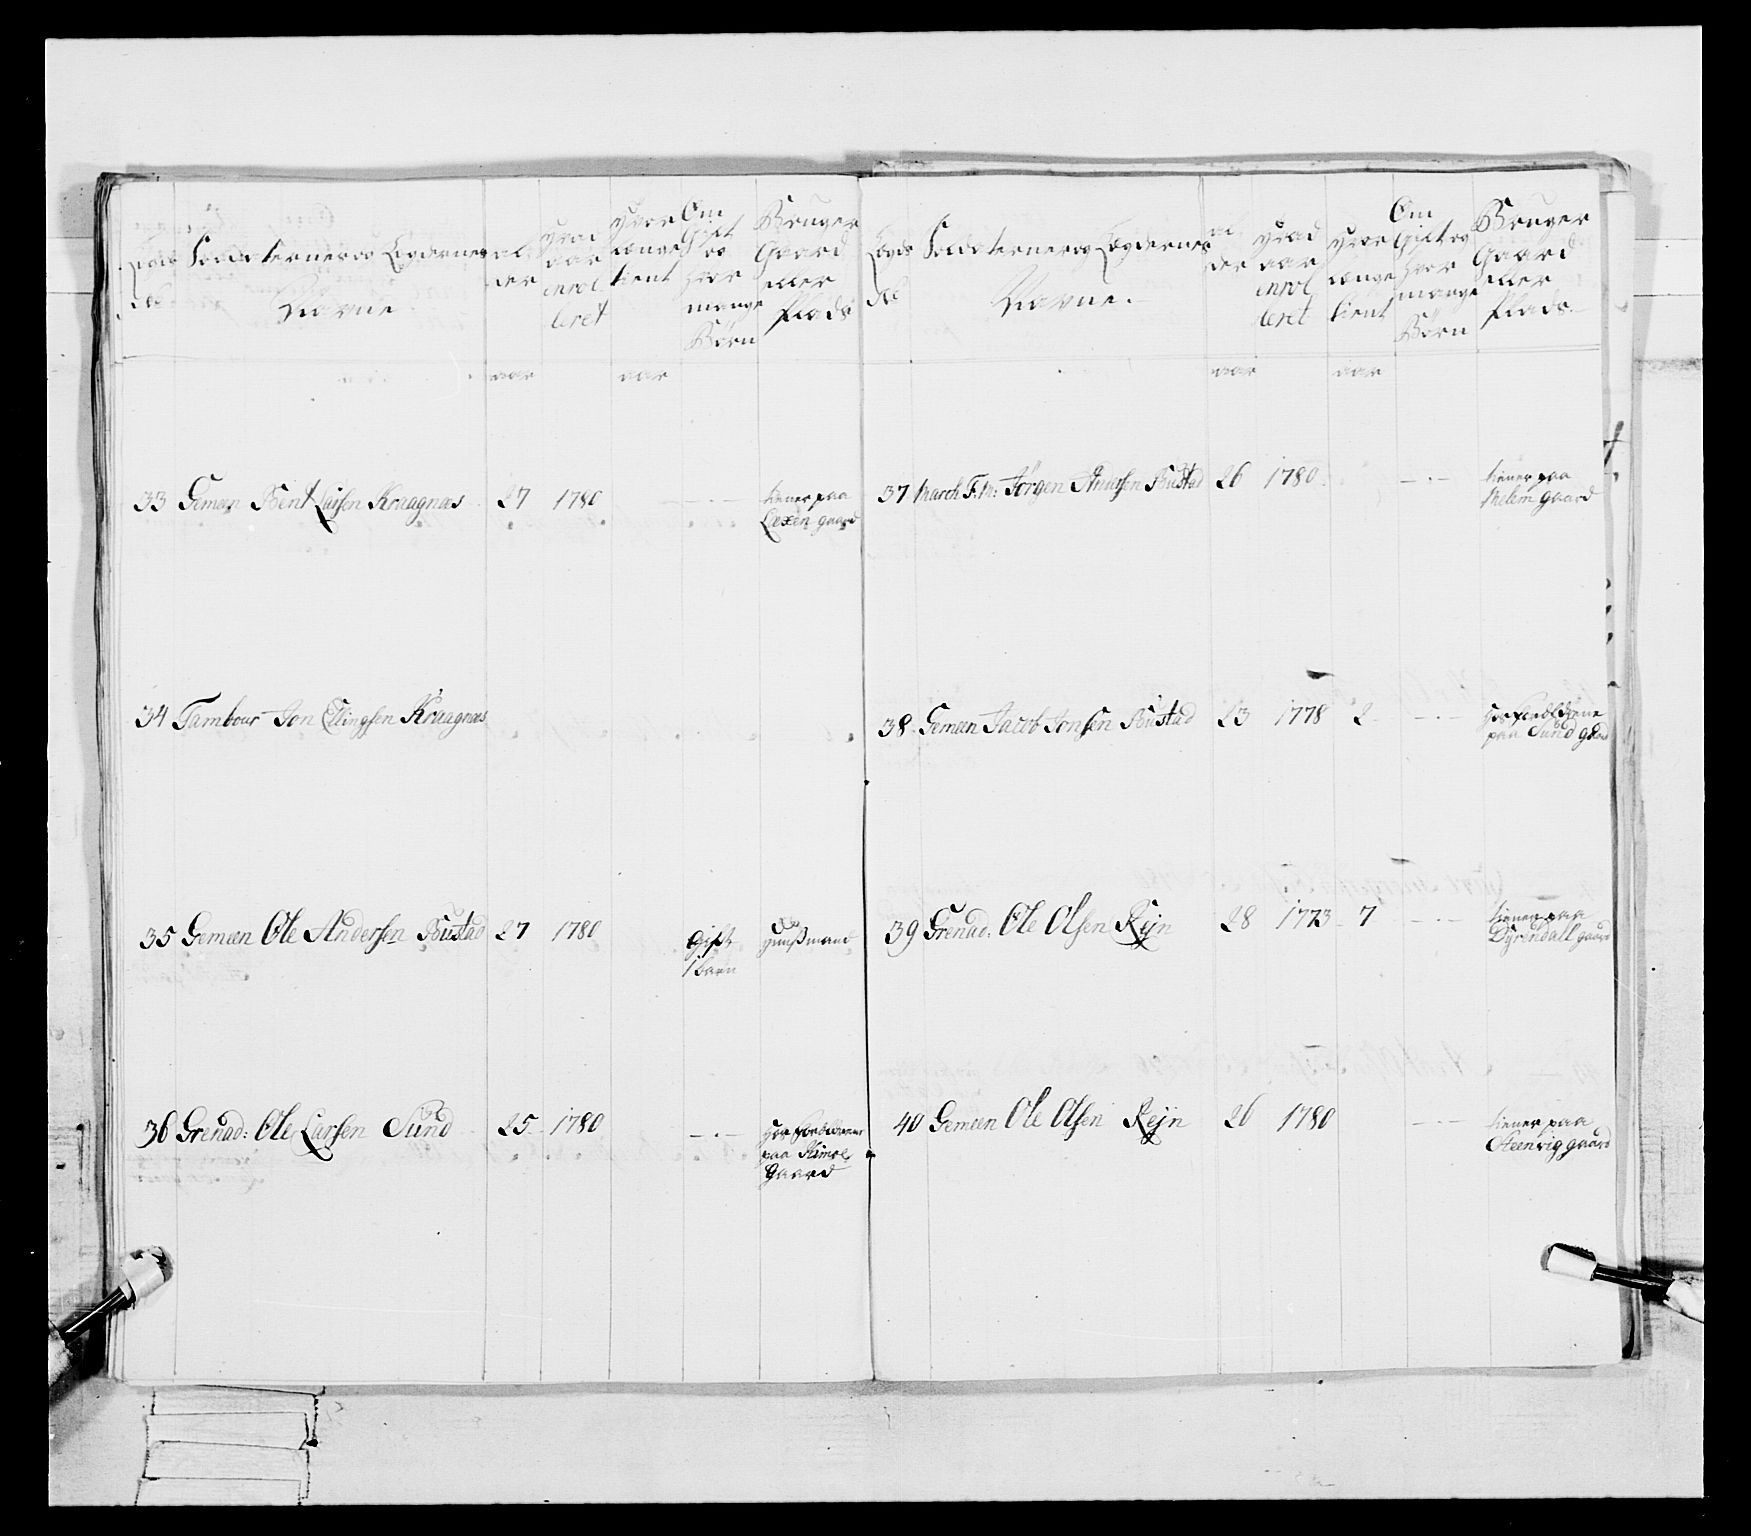 Legds No
Soldaternes og Legdernes Navne
al der
hvad aar enrol leret
hvor længe tient
Om Gift og hvor mange Børn
Bruger Gaard eller Plads
aar
aar
33 Gemeen Bent Larsen Kraagnæs 27 1780 — . — tiener paa
Laxen gaard
34 Tambour Jon Ellingsen Kraagnæs
35 Gemeen Ole Andersen Bustad 27 1780 Gift
1 barn
huusmand
36 Grenad: Ole Larsen Sund 25 1780 — . — hos Forældrene
paa
Gaard
Legds No
Soldaternes og Legdernes Navne.
al der
hvad aar enrol leret
hvor længe tient
Om Gift og hvor mange Børn
Bruger Gaard eller Plads.
aar
aar
37 March Jørgen Andersen Bustad 26 1780 — . — tiener paa
Melem gaard
38. Gemeen Jacob Jonsen Bustad 23 1778 2 — . — hos Forældrene
paa Sund gaard
39 Grenad. Ole Olsen Rejn 28 1773 7 — . — tiener paa
Dyrendall gaard
40 Gemeen Ole Olsen Rejn 26 1780 — . — tiener paa
Steenvig gaard